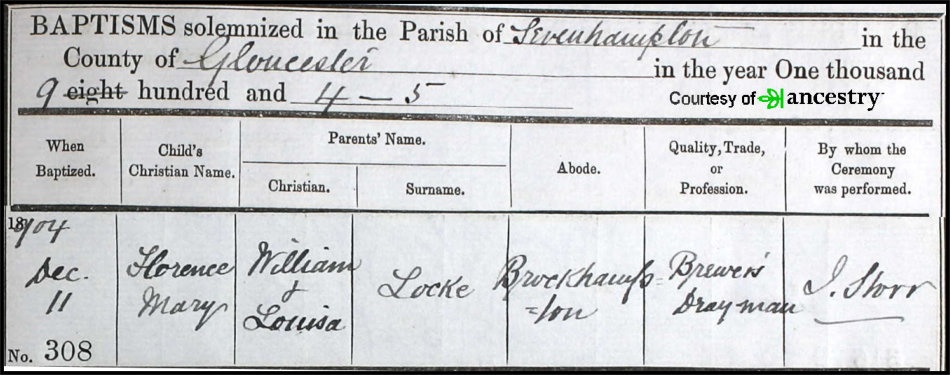 BAPTISMS solemnized in the Parish of Sevenhampton in the
County of Gloucester in the year One thousand
9 eight hundred and 4 — 5
Courtesy of ancestry
When Baptized.
Child's Christian Name.
Parents' Name.
Christian.
Surname.
Abode.
Quality, Trade, or Profession.
By whom the Ceremony was performed.
1904
Dec.
11
No. 308
Florence
Mary
William
&
Louisa
Locke
Brockhamp=
=ton
Brewer's
Drayman
J. Storr